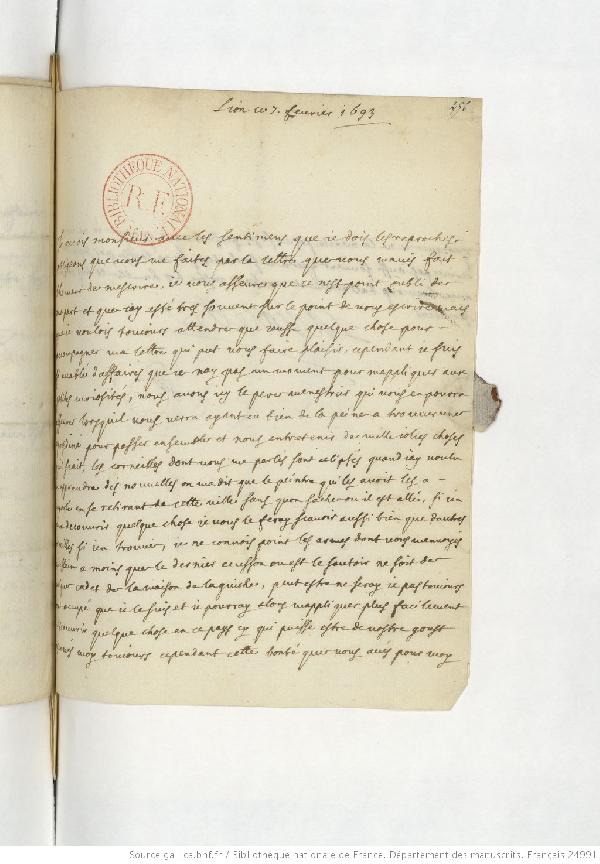 Lion ce 7. feurier 1693
256
BIBLIOTHEQUE NATIONALE
R.F.
monsieur auec les sentimens que ie dois les reproches
que vous me faites par la lettre que vous maués fait
de mescrire, ie vous asseure que ce nest point oubli de
part et que iay esté tres souuent sur le point de vous escrire mais
ie voulois toujours attendre que ieusse quelque chose pour
accompagner ma lettre qui put vous faire plaisir. cependant ie suis
accablé d'affaires que ie nay pas un moment pour mappliquer aux
curiosités, nous auons icy le pere menestrier qui vous en pourra
lorsquil vous verra ayant eu bien de la peine a trouuer une
pour passer ensemble et nous entretenir de mille iolies choses
les corneilles dont vous me parlés sont eclipsés quand iay voulu
apprendre des nouuelles on ma dit que le peintre qui les auoit les a
en se retirant de cette ville sans quon sache ou il est allé, si ien
decouuris quelque chose ie vous le feray scauoir aussi bien que dautres
si ien trouue, ie ne connois point les armes dont vous
a moins que le dernier ecusson ou est le sautoir ne soit de
cadet de la maison de laguiche, peut estre ne seray ie pas toujours
occupé que ie le suis et ie pourray alors mappliquer plus facilement
quelque chose en ce pays cy qui puisse estre de vostre goust
moy toujours cependant cette bonté que vous aués pour moy
Source gallica.bnf.fr / Bibliothèque nationale de France. Département des manuscrits. Français 24991